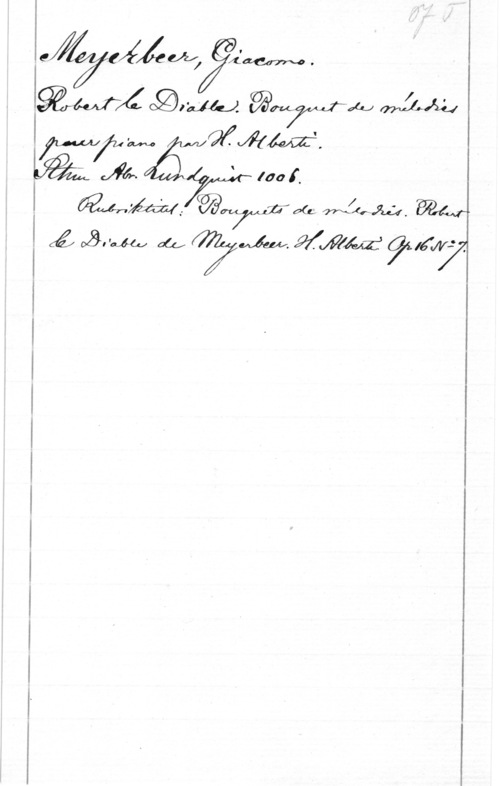 Meyerbeer, Giacomo.
Robert le Diable. Bouquet de mélodies
pour piano par H. Alberti.
Sthm Abr. Lundquist 1006.
Rubriktitel: Bouquets de mélodies. Robert
le Diable de Meyerbeer. H. Alberti Op 16 No 7.